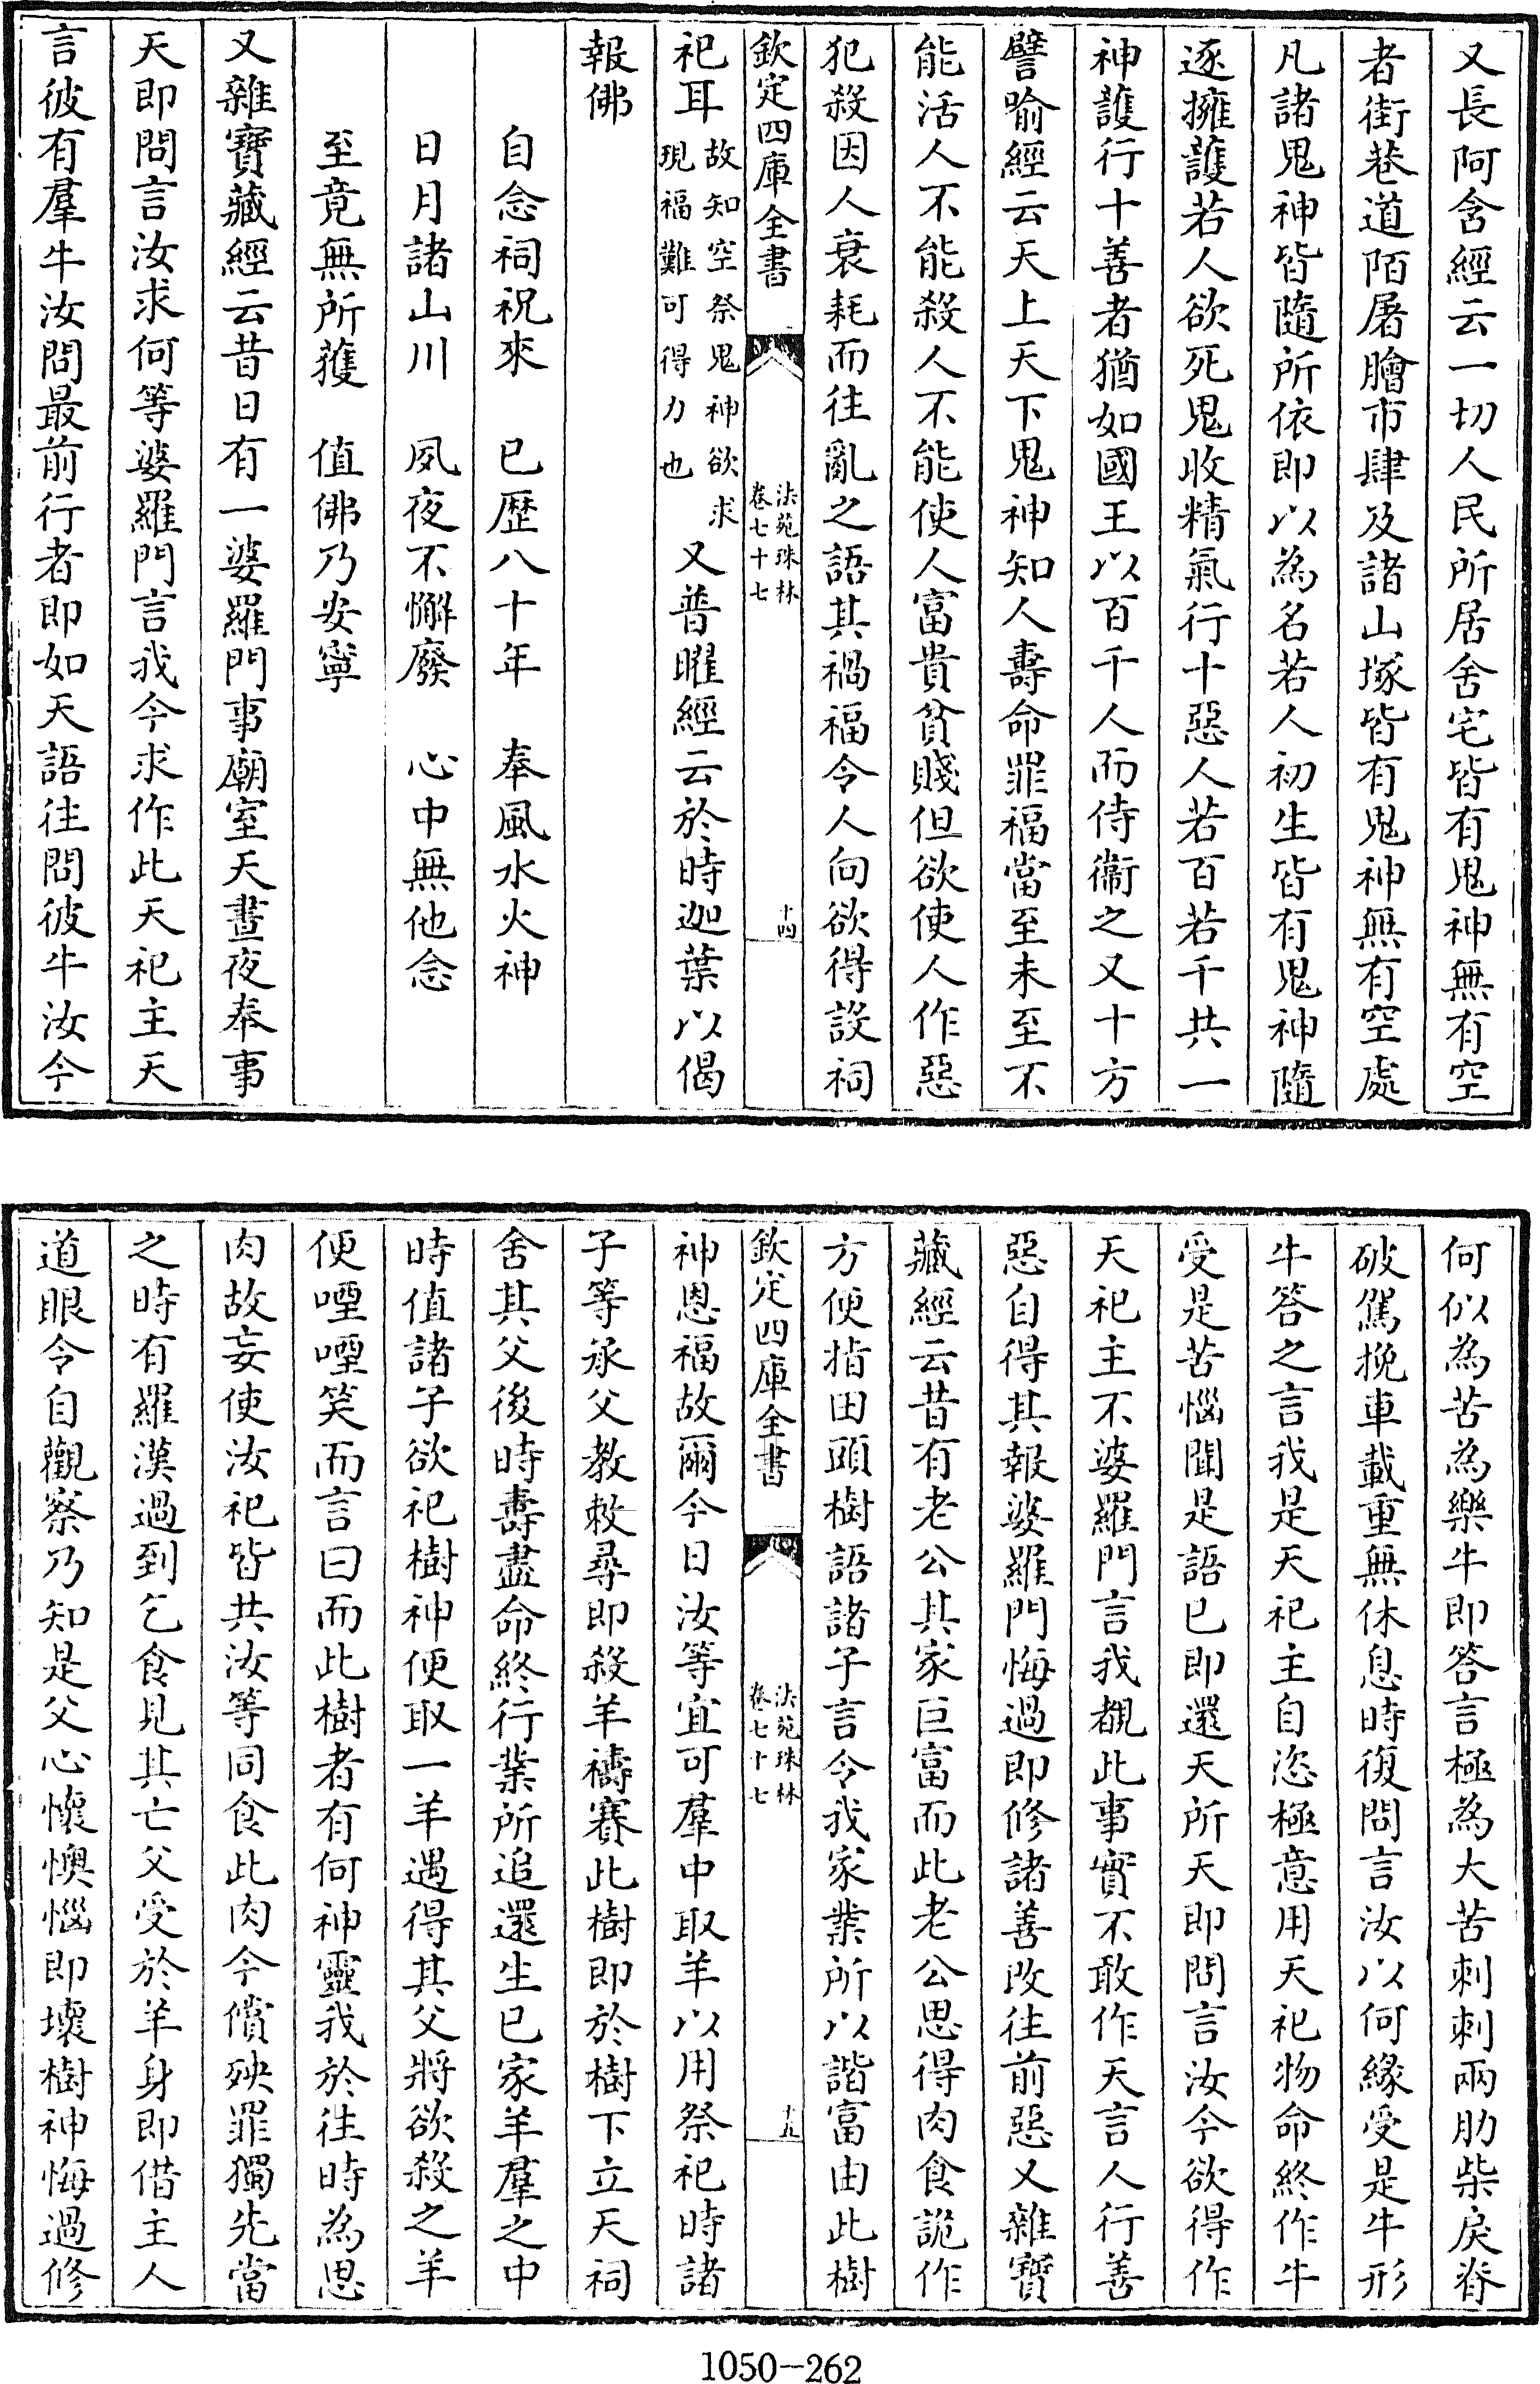 又長阿含經云一切人民所居舍宅皆有鬼神無有空
者街巷道陌屠膾市肆及諸山塚皆有鬼神無有空處
凡諸鬼神皆隨所依即以為名若人初生皆有鬼神隨
逐擁護若人欲死鬼收精氣行十惡人若百若千共一
神護行十善者猶如國王以百千人而侍衞之又十方
譬喻經云天上天下鬼神知人壽命罪福當至未至不
能活人不能殺人不能使人富貴貧賤但欲使人作惡
犯殺因人衰耗而往亂之語其禍福令人向欲得設祠
欽定四庫全書
法苑珠林
卷七十七
十四
祀耳故知空祭鬼神欲求現福難可得力也又普曜經云於時迦葉以偈
報佛
自念祠祝來 已歷八十年 奉風水火神
日月諸山川 夙夜不懈廢 心中無他念
至竟無所獲 值佛乃安寧
又雜寶藏經云昔日有一婆羅門事廟室天晝夜奉事
天即問言汝求何等婆羅門言我今求作此天祀主天
言彼有羣牛汝問最前行者即如天語往問彼牛汝今
何似為苦為樂牛即答言極為大苦刺刺兩肋柴戾脊
破駕挽車載重無休息時復問言汝以何緣受是牛形
牛答之言我是天祀主自恣極意用天祀物命終作牛
受是苦惱聞是語已即還天所天即問言汝今欲得作
天祀主不婆羅門言我覩此事實不敢作天言人行善
惡自得其報婆羅門悔過即修諸善改往前惡又雜寶
藏經云昔有老公其家巨富而此老公思得肉食詭作
方便指田頭樹語諸子言令我家業所以諧富由此樹
欽定四庫全書
法苑珠林
卷七十七
十九
神恩福故爾今日汝等宜可羣中取羊以用祭祀時諸
子等承父教敕尋即殺羊禱賽此樹即於樹下立天祠
舍其父後時壽盡命終行業所追還生已家羊羣之中
時值諸子欲祀樹神便取一羊遇得其父將欲殺之羊
便㖶㖶笑而言曰而此樹者有何神靈我於往時為思
肉故妄使汝祀皆共汝等同食此肉今償殃罪獨先當
之時有羅漢過到乞食見其亡父受於羊身即借主人
道眼令自觀察乃知是父心懷懊惱即壞樹神悔過修
1050-262